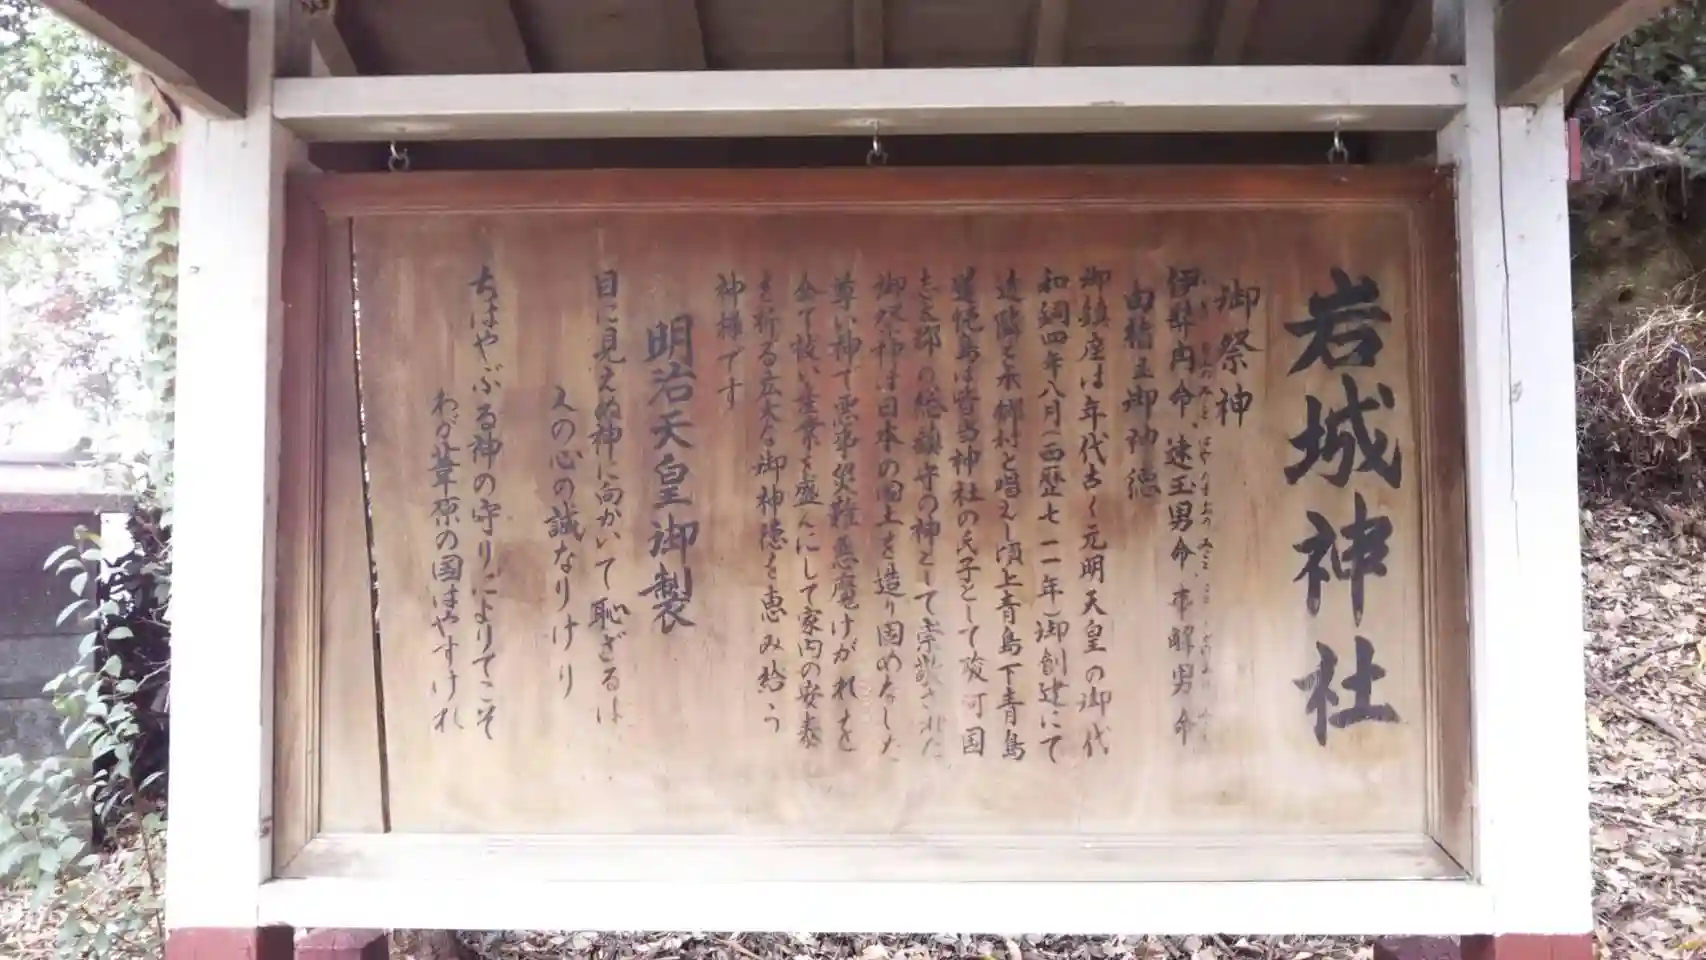 岩城神社
御祭神
伊弉冉命、速玉男命、事解男命
由緒並御神徳
御鎮座は年代古く元明天皇の御代
和銅四年八月(西歴七一一年)御創建にて
遠隣を永郷村と唱えし頃上青島下青島
道悦島は皆当神社の氏子として駿河国
志太郡の総鎮守の神として崇敬された
御祭神は日本の国土を造り固めなした
尊い神で悪事災難悪魔けがれを
全て祓い生業を盛んにして家内の安泰
を祈る広大な御神徳を恵み給う
神様です
明治天皇御製
目に見えぬ神に向かいて恥ざるは
人の心の誠なりけり
ちはやぶる神の守りによりてこそ
わが葦原の国はやすけれ